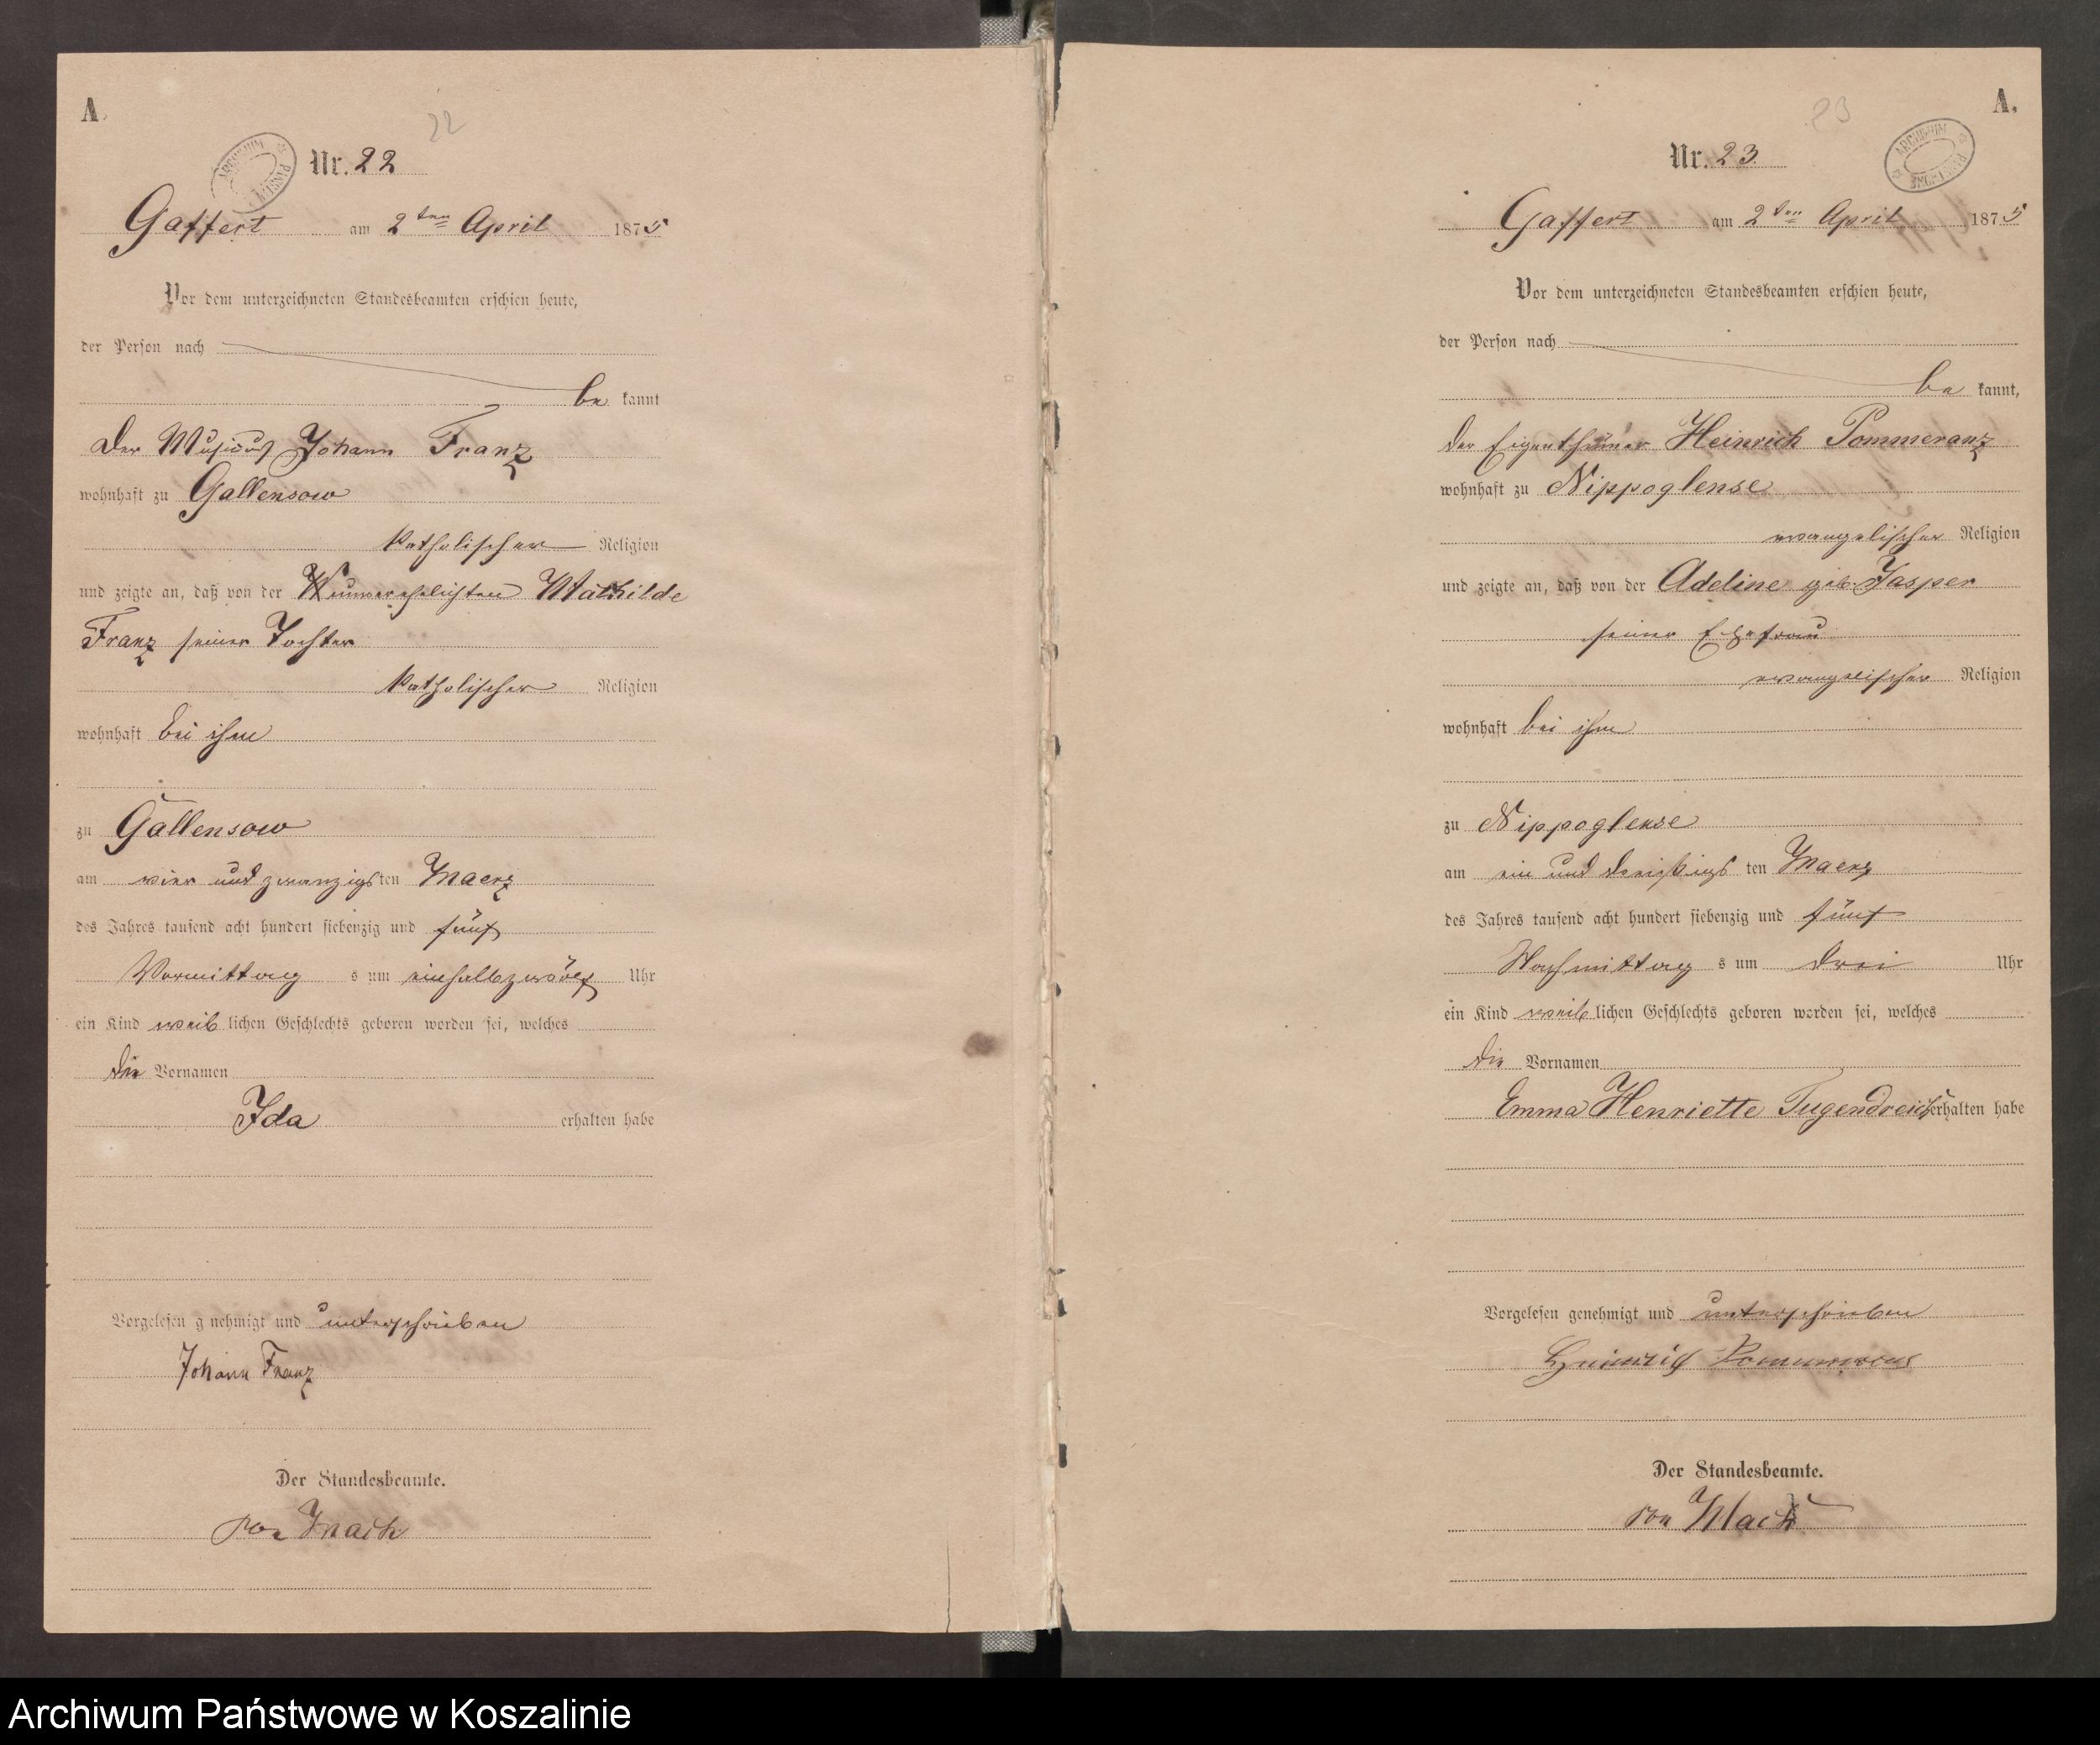 A.
22
ARCHIWUM PAŃSTWOWE
Nr. 22
Gaffert am 2ten April 1875
Vor dem unterzeichneten Standesbeamten erschien heute,
der Person nach
be kannt
Der Musicus Johann Franz
wohnhaft zu Gallensow
katholischer Religion
und zeigte an, daß von der unverehelichten Mathilde
Franz seiner Tochter
katholischer Religion
wohnhaft bei ihm
zu Gallensow
am vier und zwanzigsten Maerz
des Jahres tausend acht hundert siebenzig und fünf
Vormittag s um einhalbzwölf Uhr
ein Kind weiblichen Geschlechts geboren worden sei, welches
die Vornamen
Ida erhalten habe
Vorgelesen g nehmigt und unterschrieben
Johann Franz
Der Standesbeamte.
von Mach
A.
23
ARCHIWUM PAŃSTWOWE
Nr. 23.
Gaffert am 2ten April 1875
Vor dem unterzeichneten Standesbeamten erschien heute,
der Person nach
be kannt,
Der Eigenthümer Heinrich Pommeranz
wohnhaft zu Nippoglense
evangelischer Religion
und zeigte an, daß von der Adeline geb. Jasper
seiner Ehefrau
evangelischer Religion
wohnhaft bei ihm
zu Nippoglense
am ein und dreißigs ten Maerz
des Jahres tausend acht hundert siebenzig und fünf
Nachmittag s um drei Uhr
ein Kind weiblichen Geschlechts geboren worden sei, welches
die Vornamen
Emma Henriette Tugendreich erhalten habe
Vorgelesen genehmigt und unterschrieben
Heinrich
Der Standesbeamte.
von Mach
Archiwum Państwowe w Koszalinie